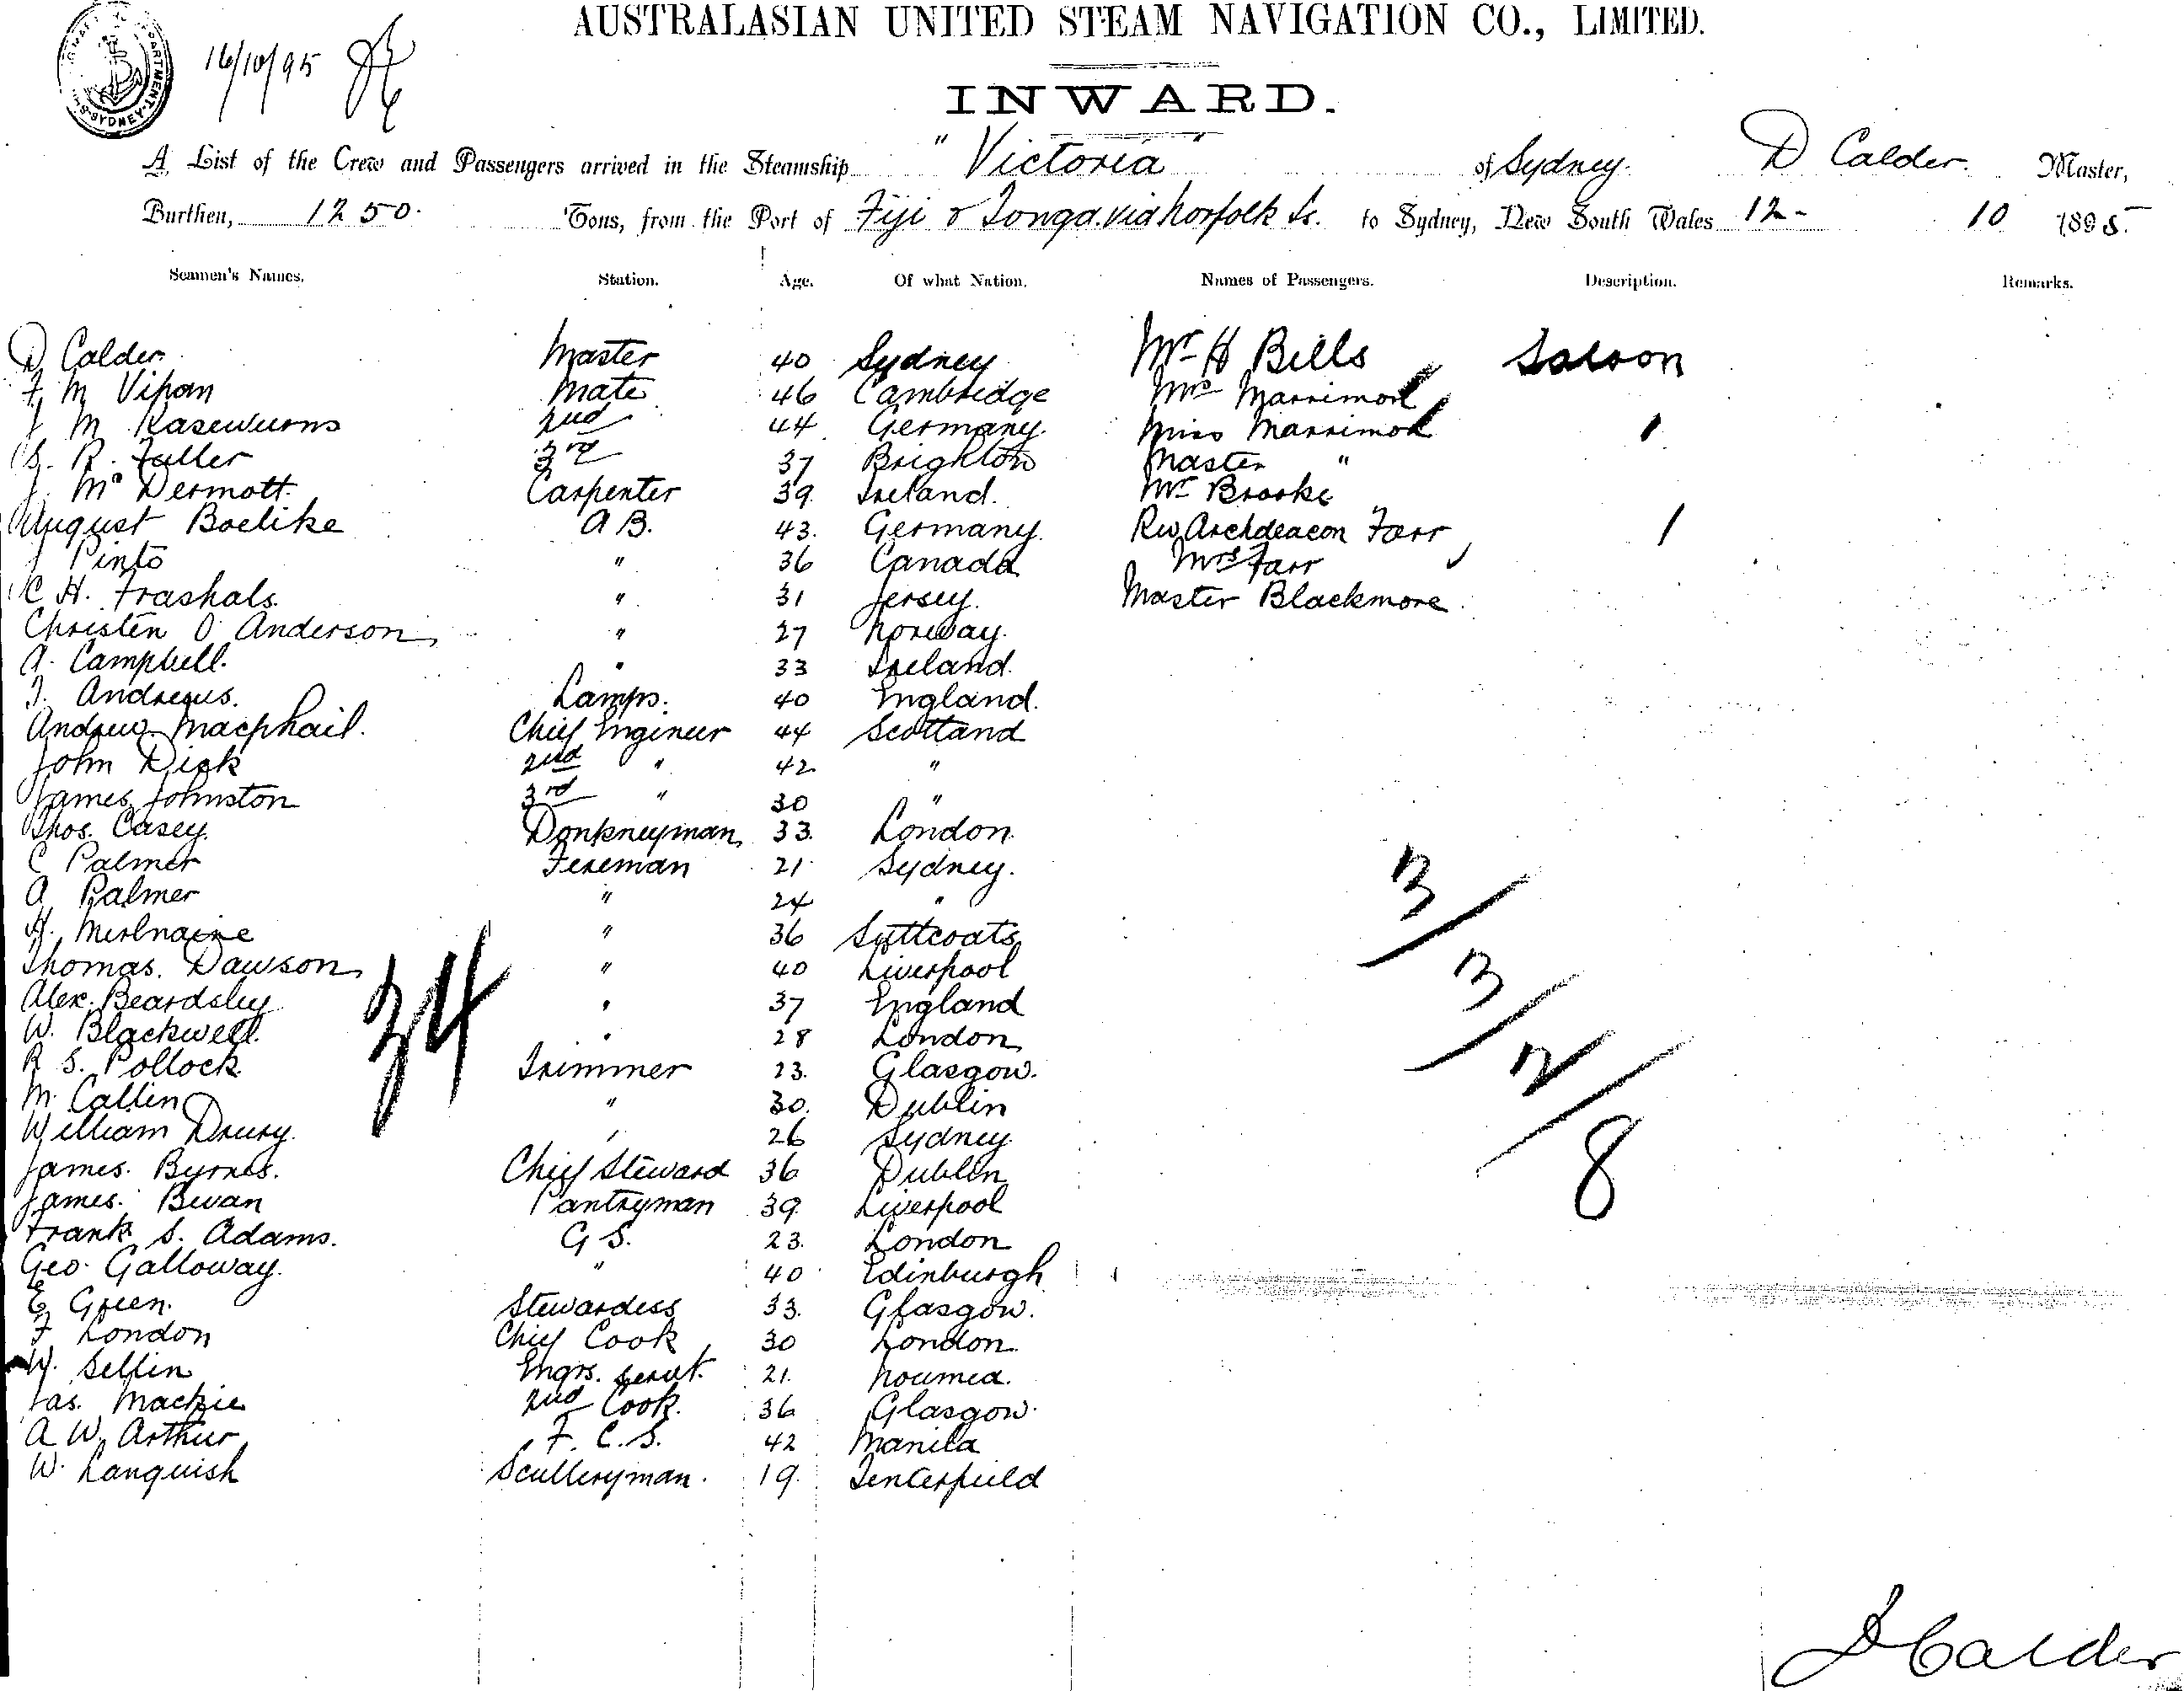 AUSTRALASIAN UNITED STEAM NAVIGATION CO., LIMITED.
16/10/95
INWARD.
A List of the Crew and Passengers arrived in the Steamship "Victoria" of Sydney. D Calder. Master,
Burthen, 1250. Tons, from the Port of Fiji & Tonga. via Norfolk Is. to Sydney, New South Wales 12 - 10 1895.
Seamen's Names. Station. Age. Of what Nation. Names of Passengers. Description. Remarks.
D Calder. Master 40 Sydney Mr H Bills Saloon
F. M Vipan Mate 46 Cambridge Mrs Marrimon
J M Kasewurns 2nd 44 Germany. Miss Marrimon
G. R. Fuller 3rd 37 Brighton Master "
J. McDermott. Carpenter 39. Ireland. Mr Brooke
August Boelike A B. 43. Germany. Rev Archdeacon Farr
J Pinto " 36 Canada Mrs Farr
C H. Frashals. " 31 Jersey. Master Blackmore
Christen O Anderson " 27 Norway.
A. Campbell. " 33 Ireland.
J. Andrews. Lamps. 40 England.
Andrew Macphail. Chief Engineer 44 Scotland
John Dick 2nd " 42 "
James Johnston 3rd " 30 "
Thos. Casey. Donkneyman 33. London
C Palmer Fireman 21 Sydney.
A. Palmer " 24 "
H. " 36
Thomas. Dawson " 40 Liverpool
Alex. Beardsley " 37 England
W. Blackwell. " 28 London
R S. Pollock Trimmer 23. Glasgow.
M. Callin " 30. Dublin
William Drury. " 26 Sydney
James. Byrnes. Chief Steward 36 Dublin
James. Bevan Pantryman 39. Liverpool
Frank S. Adams. G S. 23. London
Geo. Galloway. " 40 Edinburgh
E, Green. Stewardess 33. Glasgow.
F London Chief Cook 30 London
W. Sellin Engrs. servt. 21. Noumea.
Jas. Mackie 2nd Cook. 36 Glasgow.
A W. Arthur F. C. S. 42 Manila
W. Languish Sculleryman. 19. Tenterfield
34
3/3/2/8
D Calder